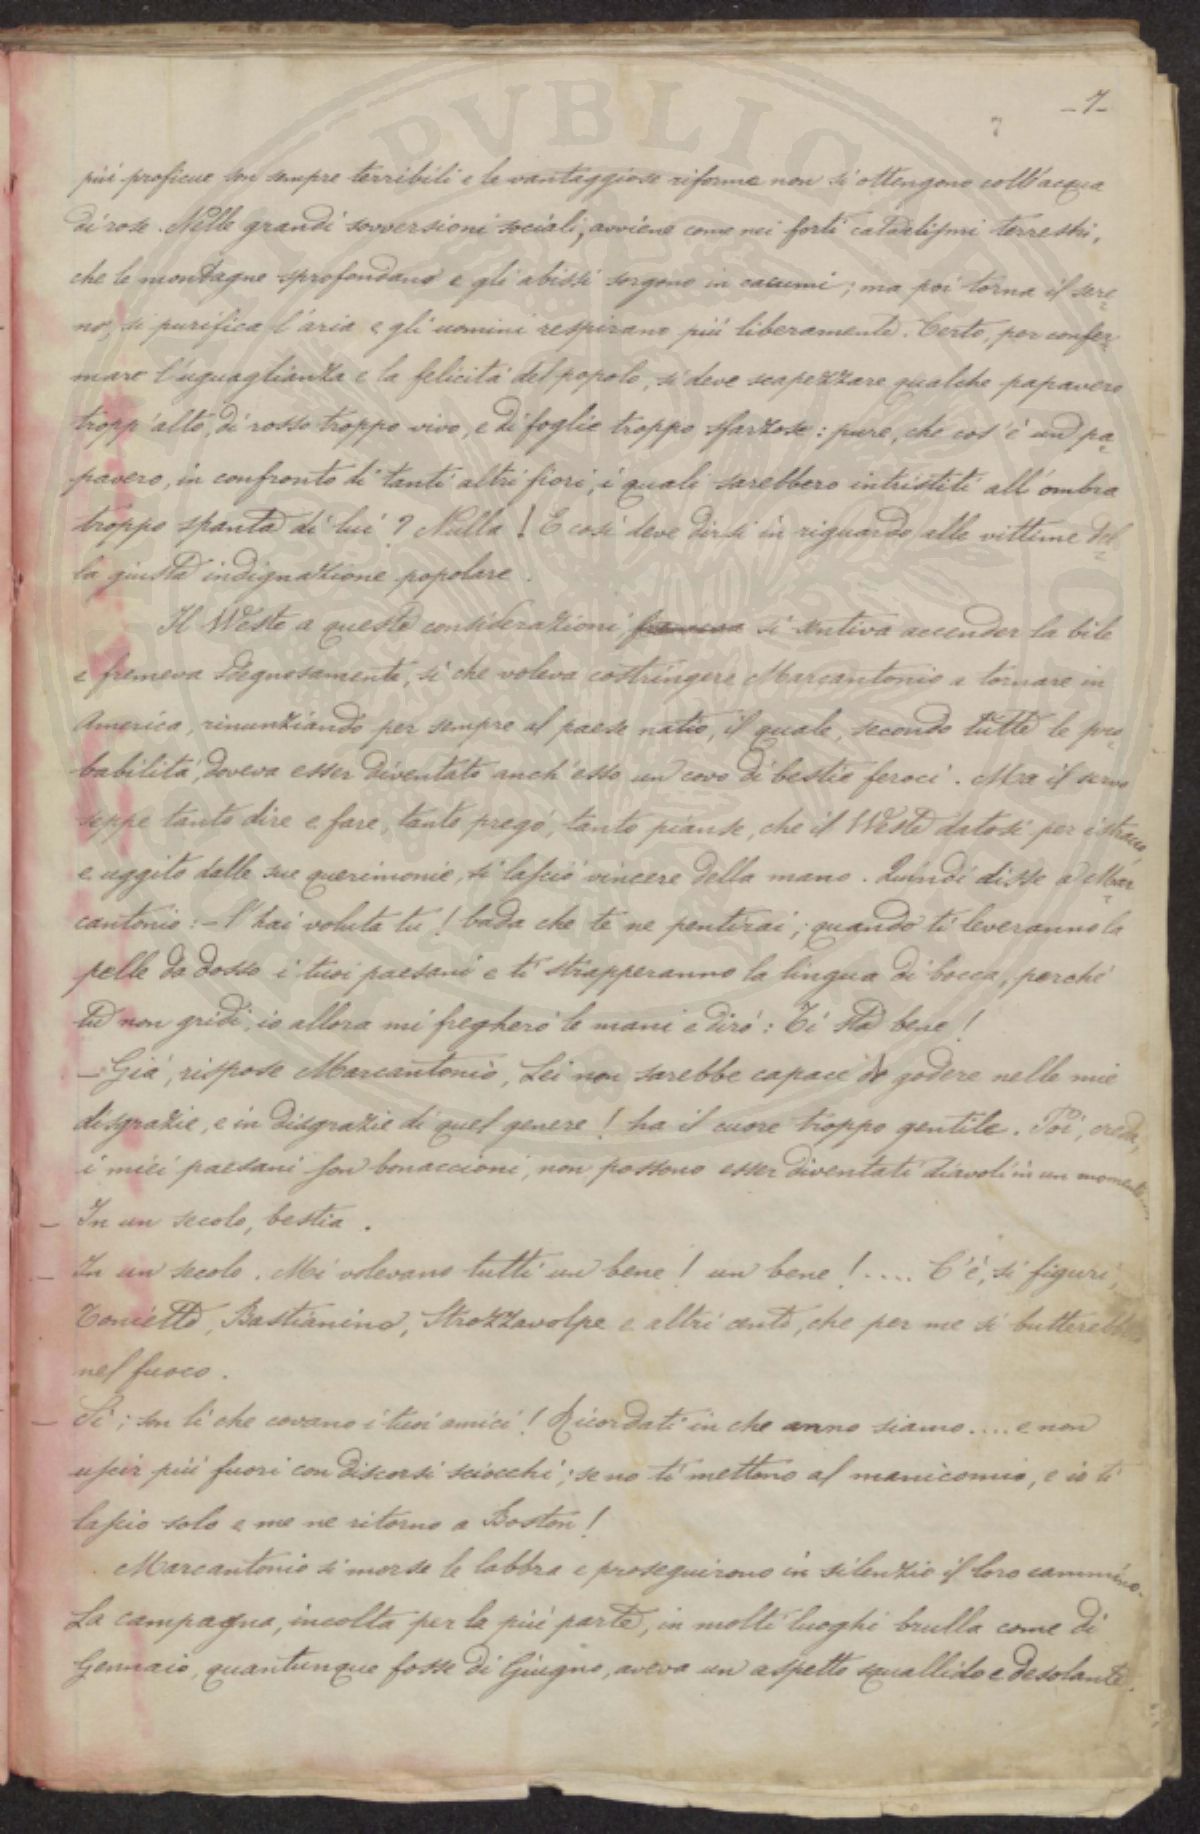 -7-
7
più proficue son sempre terribili e le vantaggiose riforme non si ottengono coll'acqua
di rose. Nelle grandi sovversioni sociali, avviene come nei forti cataclismi terrestri,
che le montagne sprofondano e gli abissi sorgono in cacumi; ma poi torna il sere=
no, si purifica l'aria e gli uomini respirano più liberamente. Certo, per confer=
mare l'uguaglianza e la felicità del popolo, si deve scapezzare qualche papavero
tropp'alto, di rosso troppo vivo, e di foglie troppo sfarzose: pure, che cos'è un pa=
pavero, in confronto di tanti altri fiori, i quali sarebbero intristiti all'ombra
troppo spanta di lui? Nulla! E così deve dirsi in riguardo alle vittime del=
la giusta indignazione popolare.
Il Weste a queste considerazioni fremeva si sentiva accender la bile
e fremeva sdegnosamente, sì che voleva costringere Marcantonio a tornare in
America, rinunziando per sempre al paese natio, il quale, secondo tutte le pro=
babilità, doveva esser diventato anch'esso un covo di bestie feroci. Ma il servo
seppe tanto dire e fare, tanto pregò, tanto pianse, che il Weste datosi per istracco,
e uggito dalle sue querimonie, si lasciò vincere della mano. Quindi disse a Mar=
cantonio: - l'hai voluta tu! bada che te ne pentirai; quando ti leveranno la
pelle da dosso i tuoi paesani e ti strapperanno la lingua di bocca, perché
tu non gridi, io allora mi fregherò le mani e dirò: Ti sta bene!
- Già, rispose Marcantonio, Lei non sarebbe capace di godere nelle mie
disgrazie, e in disgrazie di quel genere! ha il cuore troppo gentile. Poi, creda,
i miei paesani son bonaccioni, non possono esser diventati diavoli in un momento...
- In un secolo, bestia.
- In un secolo. Mi volevano tutti un bene! un bene!.... C'è, si figuri,
Tonietto, Bastianino, Strozzavolpe e altri cento, che per me si butterebbero
nel fuoco.
- Sì; son lì che covano i tuoi amici! Ricordati in che anno siamo.... e non
uscir più fuori con discorsi sciocchi; se no ti mettono al manicomio, e io ti
lascio solo e me ne ritorno a Boston!
Marcantonio si morse le labbra e proseguirono in silenzio il loro cammino.
La campagna, incolta per la più parte, in molti luoghi brulla come di
Gennaio, quantunque fosse di Giugno, aveva un aspetto squallido e desolante.